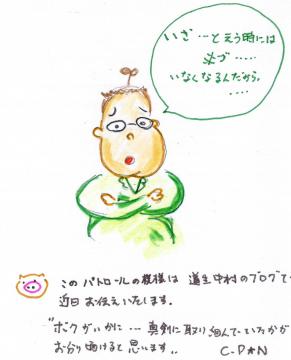 いざ…とえう時には
必ず……
いなくなるんだから。
....
このパトロールの模様は 道生中村のブログで
近日 お伝えいたします。
"ボクがいかに… 真剣に取り組んでいたかが
お分り頂けると思います〟
C-P★N